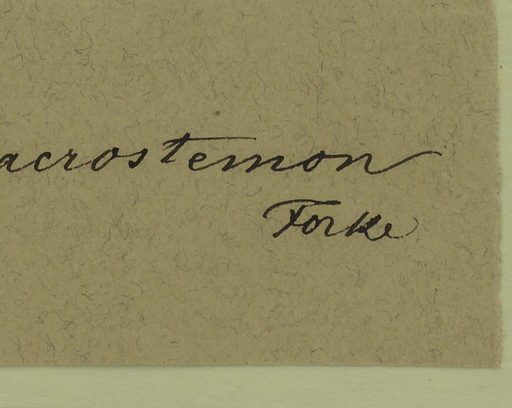 acrostemon
Forke